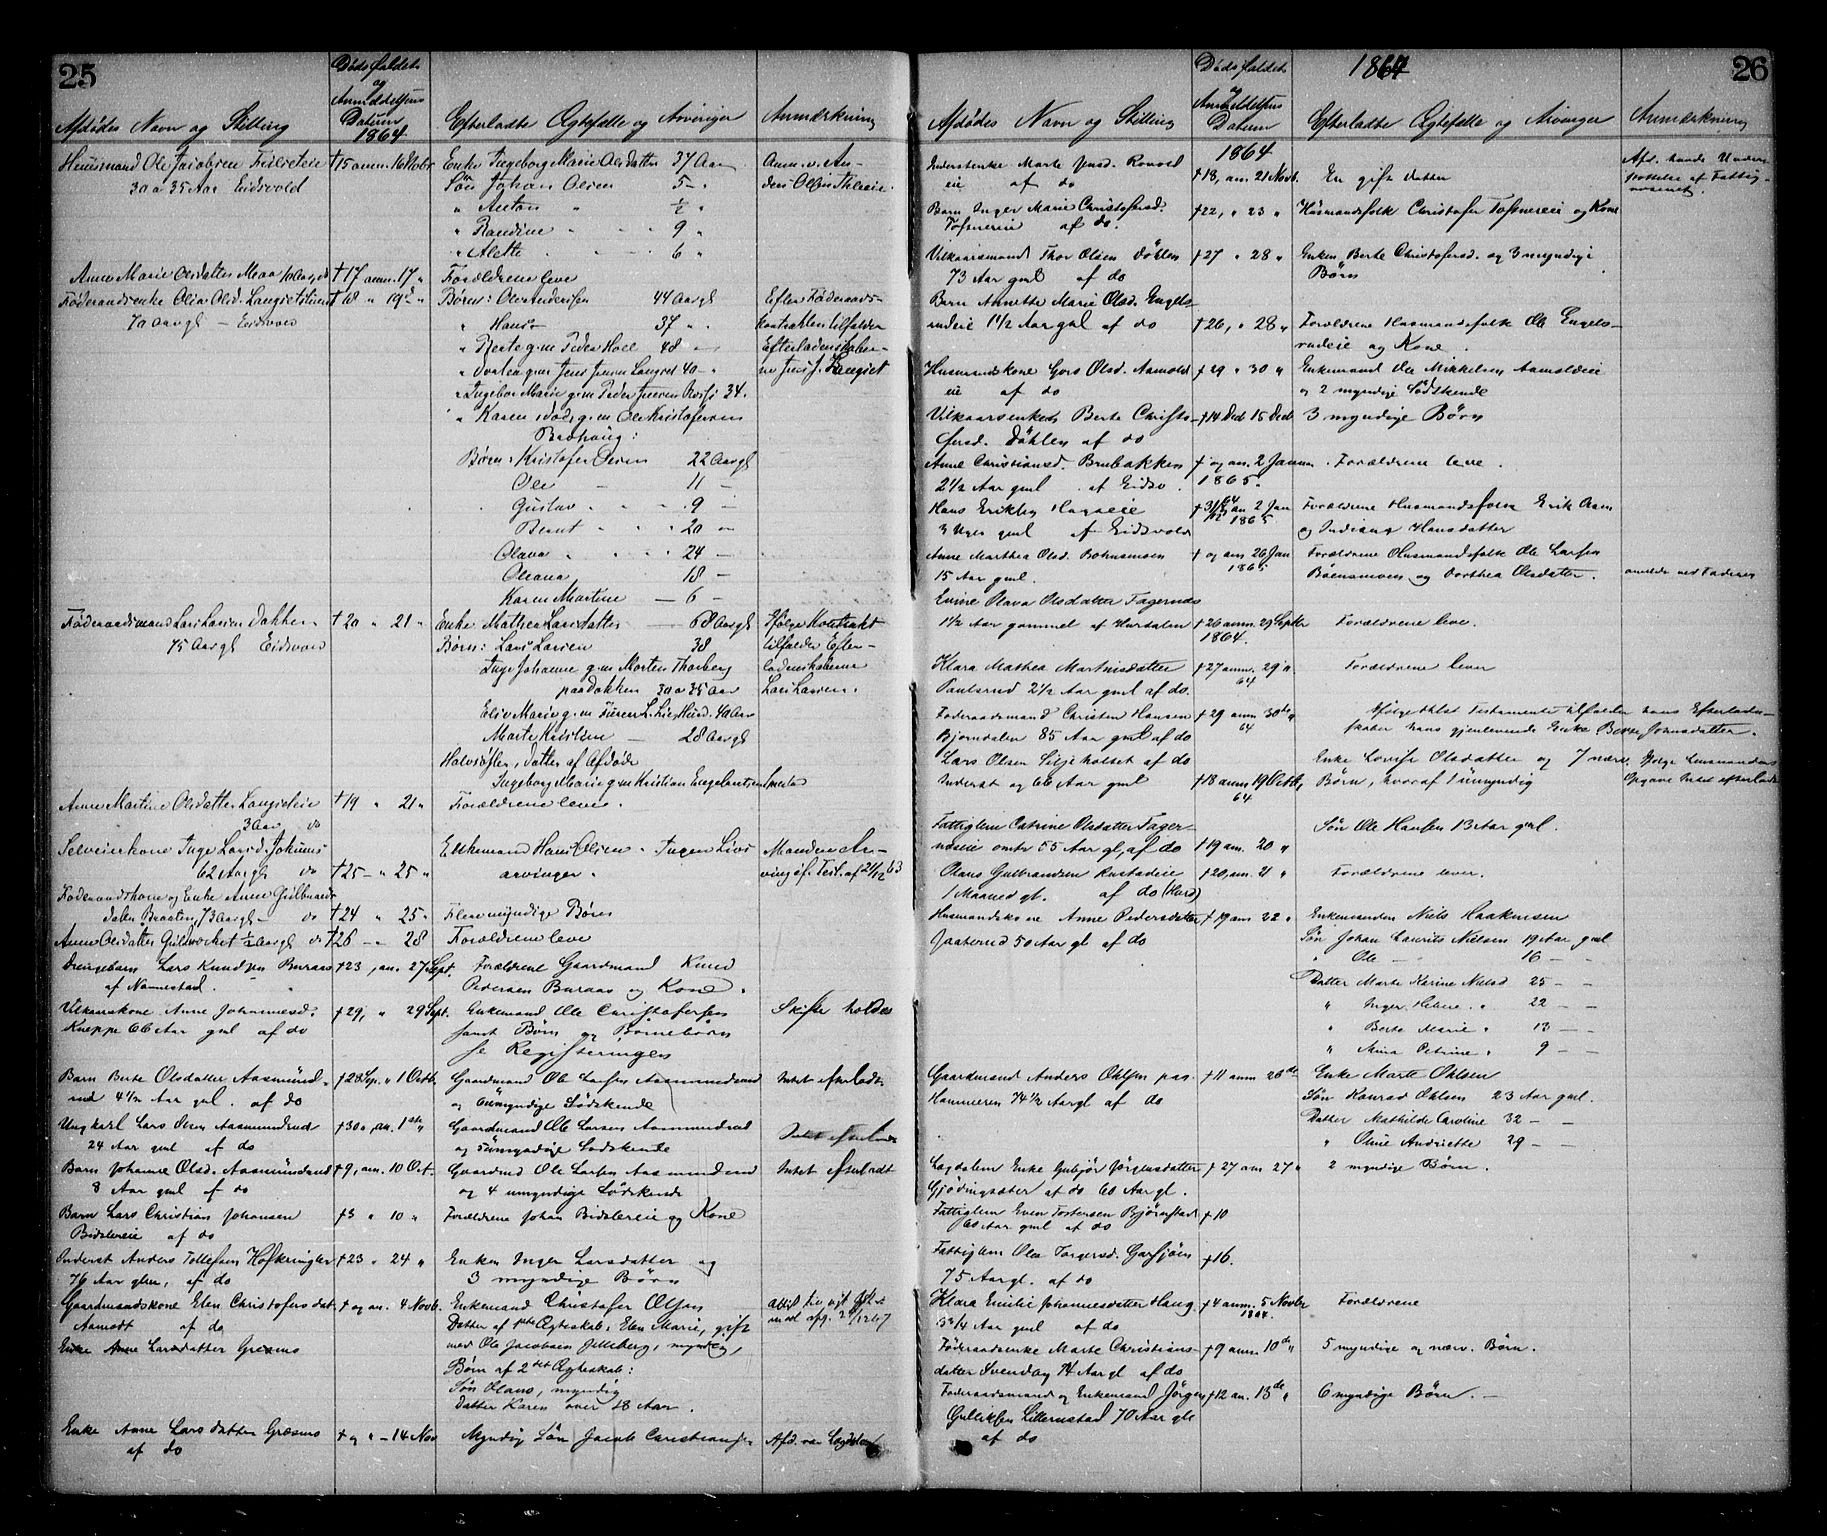 25
Afdødes Navn og Stilling
Dødsfaldets
og
Anmeldelsens
Datum
1864
Efterladte Ægtefælle og Arvinger
Anmærkning
Huusmand Ole Jacobsen
30 a 35 Aar Eidsvold
†15 anm. 16 Novbr.
Enke Ingeborg Marie Olsdatter 37 Aar
Søn Johan Olsen 5 - "
" Anton " ½ "
" Randine " 9 "
" Alette 6 "
Anm. v. An-
ders Olsen
Anne Marie Olsdatter
†17 anm. 17 "
Forældrene leve
Føderaadsenke
70 Aar gl - Eidsvold
†18 " 19 "
Børn: Ole Andersen 44 Aar gl
" Hans 37 " "
" Berte g.m. Peder 48 -
" g.m. Jens Jensen Langset 40 - "
" Ingebor Marie g.m. Peder 34.
" Karen død, g.m. Ole Kristofersen
Børn: Kristofer Olsen 22 Aar gl
Ole - 11 -
Gustav " " 9 -
Bernt " " 20 -
Olava " " 24 -
Oleana 18 -
Karen Martine - 6 -
Efter Føderaads-
kontrakten tilfalder
Efterladenskaber-
ne Jens J. Langset
Føderaadsmand Lars Larsen Dokken
75 Aar gl Eidsvold
†20 " 21 "
Enke Mathea Larsdatter - 68 Aar gl
Børn: Lars Larsen 38
Inge Johanne g.m. Morten Thorberg
paa Dokken 30 a 35 Aar
Marte - 28 Aar gl
Datter af Afdøde
Ingeborg Marie g.m. Kristian
Ifølge Kontrakt
tilfalder Efter-
ladenskaberne
Lars Larsen.
Anne Martine Olsdatter
3 Aar do
†19 " 21 "
Forældrene lever.
Selveierkone Inge Larsd.
62 Aar gl do
†25 - " 25 "
Enkemand Hans Olsen - Ingen Livs
arvinger.
Manden Ar-
ving if. Test. af
Føderaadskone og Enke Anne Gulbrands
datter Braaten, 73 Aar gl - do
†24 " 25 "
Flere myndige Børn
Anne Olsdatter ½ Aar gl do
†26 - " 28
Forældrene leve
Drengebarn Lars Knudsen Buraas
af Nannestad.
†23, an. 27 Sept.
Forældrene Gaardmand Knud
Pedersen Buraas og Kone.
Vilkaarskone Anne Johannesd.
Kneppe 66 Aar gml af do
†29, " 29 Sept.
Enkemand Ole Christofersen
samt Børn og Børnebørn
se Registeringen
Skifte holdes
Barn Berte Olsdatter Aasmund-
rud 4½ Aar gml. af do
†28 Sep. " 1 Octb.
Gaardmand Ole Larsen Aasmundrud
og 6 umyndige Sødskende
Intet efterladt.
Ungkarl Lars Olsen Aasmundrud
24 Aar gml af do
†30, an. 1ste "
Gaardmand Ole Larsen Aasmundrud
og 5 umyndige Sødskende
Intet efterladt
Barn Johanne Olsd. Aasmundrud
8 Aar gml af do
†9, am. 10 Oct.
Gaardmd Ole Larsen Aasmundrud
og 4 umyndige Sødskende
Intet efterladt
Barn Lars Christian Johansen
Bidslereie af do
†3 " 10 "
Forældrene Johan Bidslereie og Kone
Inderst Anders Tollefsen Hofkringler
76 Aar gml, af do
†23 " 24 "
Enken Inger Larsdatter og
3 myndige Børn
Gaardmandskone Elen Christofersdat.
Aamodt af do
† og an. 4 Novb.
Enkemand Christofer Olsen
Datter af 1ste Ægteskab: Elen Marie, gift
med Ole Jacobsen Jelleberg, myndig,
Børn af 2det Ægteskab:
Søn Hans, myndig
Datter Karen over 18 Aar.
Enke Anne Larsdatter Græsmo
Enke Anne Larsdatter Græsmo
af do
† og " - 14 Nov
Myndig Søn Jacob Christiansen
Afd. var Lægdslem
26
Afdødes Navn og Stilling
Dødsfaldets
og
Anmeldelsens
Datum
1864
1864
Efterladte Ægtefælle og Arvinger
Anmærkning
Inderstenke Marte Jensd. Rovold
eie af do
†18, am. 21 Novb.
En gift Datter
Afd. havde Under-
støttelse af Fattig-
væsenet.
Barn Inger Marie Christofersd.
Tofsnereie af do.
†22, " 23 "
Husmandsfolk Christofer Tofsnereie og Kone
Vilkaarsmand Thor Olsen Døhlen
73 Aar gml af do
†27 " 28 "
Enken Berte Christofersd. og 3 myndige
Børn
Barn Annette Marie Olsd. Engels-
rudeie 1½ Aar gml af do
†26, " 28 "
Forældrene Husmandsfolk Ole Engels-
rudeie og Kone.
Husmandskone Goro Olsd. Aamold
eie af do
†29 " 30 "
Enkemand Ole Mikkelsen Aamoldeie
og 2 myndige Sødskende
Vilkaarsenke Berte Christo-
fersd. Døhlen af do
†14 Dec 15 Decb
3 myndige Børn
Anne Christiansd. Brubakken
2½ Aar gml. af Eidsv.
† og an. 2 Januar
1865.
Forældrene leve.
Hans Eriksen
3 Uger gml af Eidsvold
†31/12 64 an 2 Jan
1865.
Forældrene Husmandsfolk Erik Olsen
og Indiane Hansdatter
Anne Marthea Olsd.
15 Aar gml.
† og am 26 Jan
1865
Forældrene Husmandsfolk Ole Larsen
og Dorthea Olsdatter.
anmeldt ved Faderen
Emine Olava Olsdatter Fagernes
1½ Aar gammel af Hurdalen
†26 anm. 29 Septbr
1864.
Forældrene leve.
Klara Mathea Martinisdatter
Paulsrud 2½ Aar gml af do
†27 anm. 29 "
64
Forældrene lever
Føderaadsmand Christen Hansen
Bjørndalen 85 Aar gml af do
†29 anm 30te "
64
Ifølge Testamente tilfalder hans Efterladen-
skaber hans gjenlevende Enke Berte Johnsdatter.
Lars Olsen af do
Inderst og 66 Aar gml
†18 anm 19 Octbr,
64
Enke Lovise Olsdatter og 7 nærv.
Børn, hvoraf 1 umyndig
Ifølge Lensmandens
Opgave Intet efterladt
Fattiglem Catrine Olsdatter Fager-
neseie omtr 55 Aar gl, af do
†19 am. 20 "
Søn Ole Hansen 13 Aar gml.
Olaus Gulbrandsen Rustadeie
1 Maaned gl. af do (Hurd)
†20, am. 21 "
Forældrene lever.
Husmandskone Anne Pedersdatter
Jaaterud 50 Aar gl af do
†19 am 22 "
Enkemanden Niels Haakensen
Søn Johan Laurits Nielsen 19 Aar gml
" Ole - 16 - -
Datter Marte Karine Nielsd 25 - -
" Inger Helene " 22 - -
" Berte Marie " 13 - -
" Mina Petrine " 9 - -
Gaardmand Anders Ohlsen paa
Hammeren 74½ Aar gl af do
†11 anm 26de
Enke Marte Ohlsen
Søn Konrad Ohlsen 23 Aar gml.
Datter Mathilde Caroline 32 - -
" Oline Andriette 29 - -
Lægdslem Enke Gubjør Jørgensdatter
Gjødingsæter af do 60 Aar gl.
†27 am 27 "
2 myndige Børn.
Fattiglem Even Tostensen Bjørnstad
60 Aar gml af do
†10
Fattiglem Olea Torgersd. Garsjøen
75 Aar gl. af do
†16.
Klara Emilie Johannesdatter Haug
3¾ Aar gml af do
†4 anm. 5 Novbr
1864.
Forældrene
Føderaadsenke Marte Christians-
datter Svendsy 74 Aar gl af do
†9 anm. 10de "
5 myndige og nærv. Børn.
Føderaadsmand og Enkemand Jørgen
Gulliksen Lillerustad 70 Aar gle
af do
†12 an. 13de "
6 myndige Børn. -